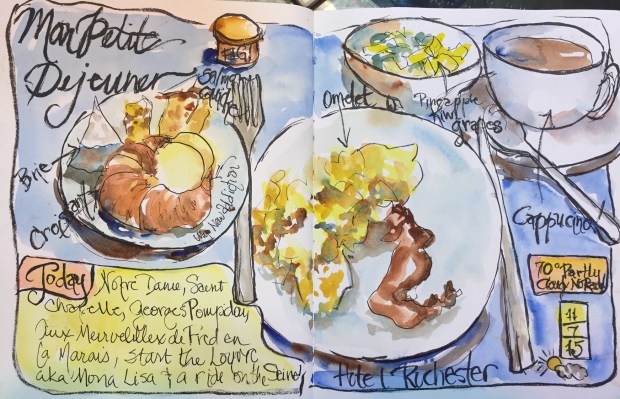 Mon Petite
Dejeuner
FIG
Salmon
Brie
Croissant
Omelet
Pineapple
Kiwi
grapes
Cappucino!
Today
Notre Dame, Saint
Chapelle, Georges Pompiday,
Aux Merveilleux de Fred en
La Marais, start the Louvre
aka Mona Lisa & a ride on the Seine
Hotel Rochester
70° Partly
Cloudy No Rain
11
7
15